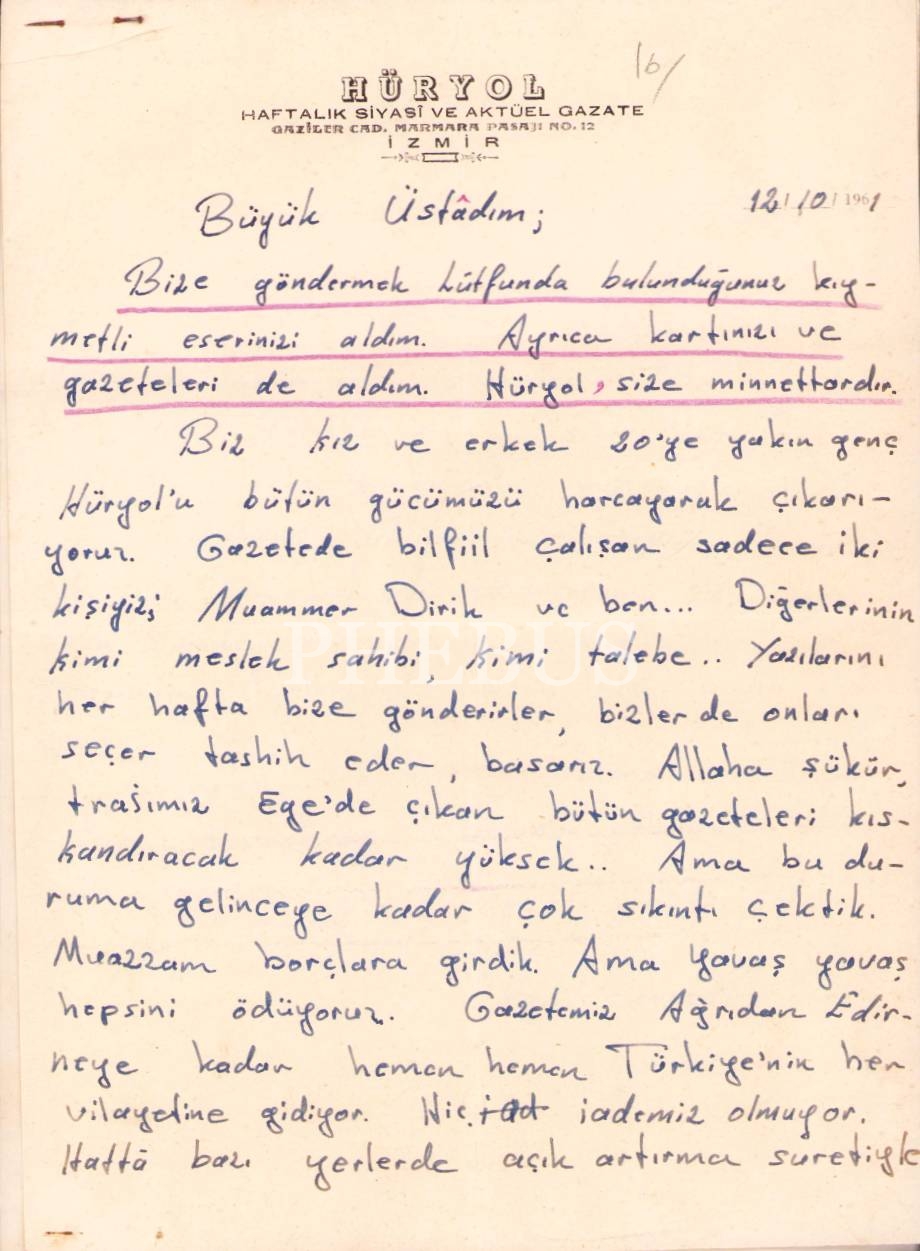 16/
HÜRYOL
HAFTALIK SİYASÎ VE AKTÜEL GAZATE
GAZİLER CAD. MARMARA PASAJI NO. 12
İZMİR
12/10/1961
Büyük Üstâdım;
Bize göndermek lûtfunda bulunduğunuz kıy-
metli eserinizi aldım. Ayrıca kartınızı ve
gazeteleri de aldım. Hüryol, size minnettardır.
Biz kız ve erkek 20'ye yakın genç
Hüryol'u bütün gücümüzü harcayarak çıkarı-
yoruz. Gazetede bilfiil çalışan sadece iki
kişiyiz; Muammer Dirik ve ben... Diğerlerinin
kimi meslek sahibi, kimi talebe.. Yazılarını
PHEBUS
her hafta bize gönderirler, bizler de onları
seçer tashih eder, basarız. Allaha şükür,
trajımız Ege'de çıkan bütün gazeteleri kıs-
kandıracak kadar yüksek.. Ama bu du-
ruma gelinceye kadar çok sıkıntı çektik.
Muazzam borçlara girdik. Ama yavaş yavaş
hepsini ödüyoruz. Gazetemiz Ağrıdan Edir-
neye kadar hemen hemen Türkiye'nin her
vilayetine gidiyor. Hiç iad iademiz olmuyor.
Hattâ bazı yerlerde açık artırma suretiyle